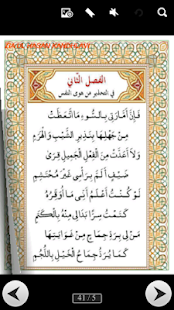 الفصل الثاني
في التحذير من هوى النفس
فَإِنَّ أَمَّارَتِي بِالسُّوءِ مَا اتَّعَظَتْ
مِنْ جَهْلِهَا بِنَذِيرِ الشَّيْبِ وَالْهَرَمِ
وَلَا أَعَدَّتْ مِنَ الْفِعْلِ الْجَمِيلِ قِرَى
ضَيْفٍ أَلَمَّ بِرَأْسِي غَيْرَ مُحْتَشِمِ
لَوْ كُنْتُ أَعْلَمُ أَنِّي مَا أُوَقِّرُهُ
كَتَمْتُ سِرًّا بَدَا لِي مِنْهُ بِالْكَتَمِ
مَنْ لِي بِرَدِّ جِمَاحٍ مِنْ غَوَايَتِهَا
كَمَا يُرَدُّ جِمَاحُ الْخَيْلِ بِاللُّجُمِ
41 / 5